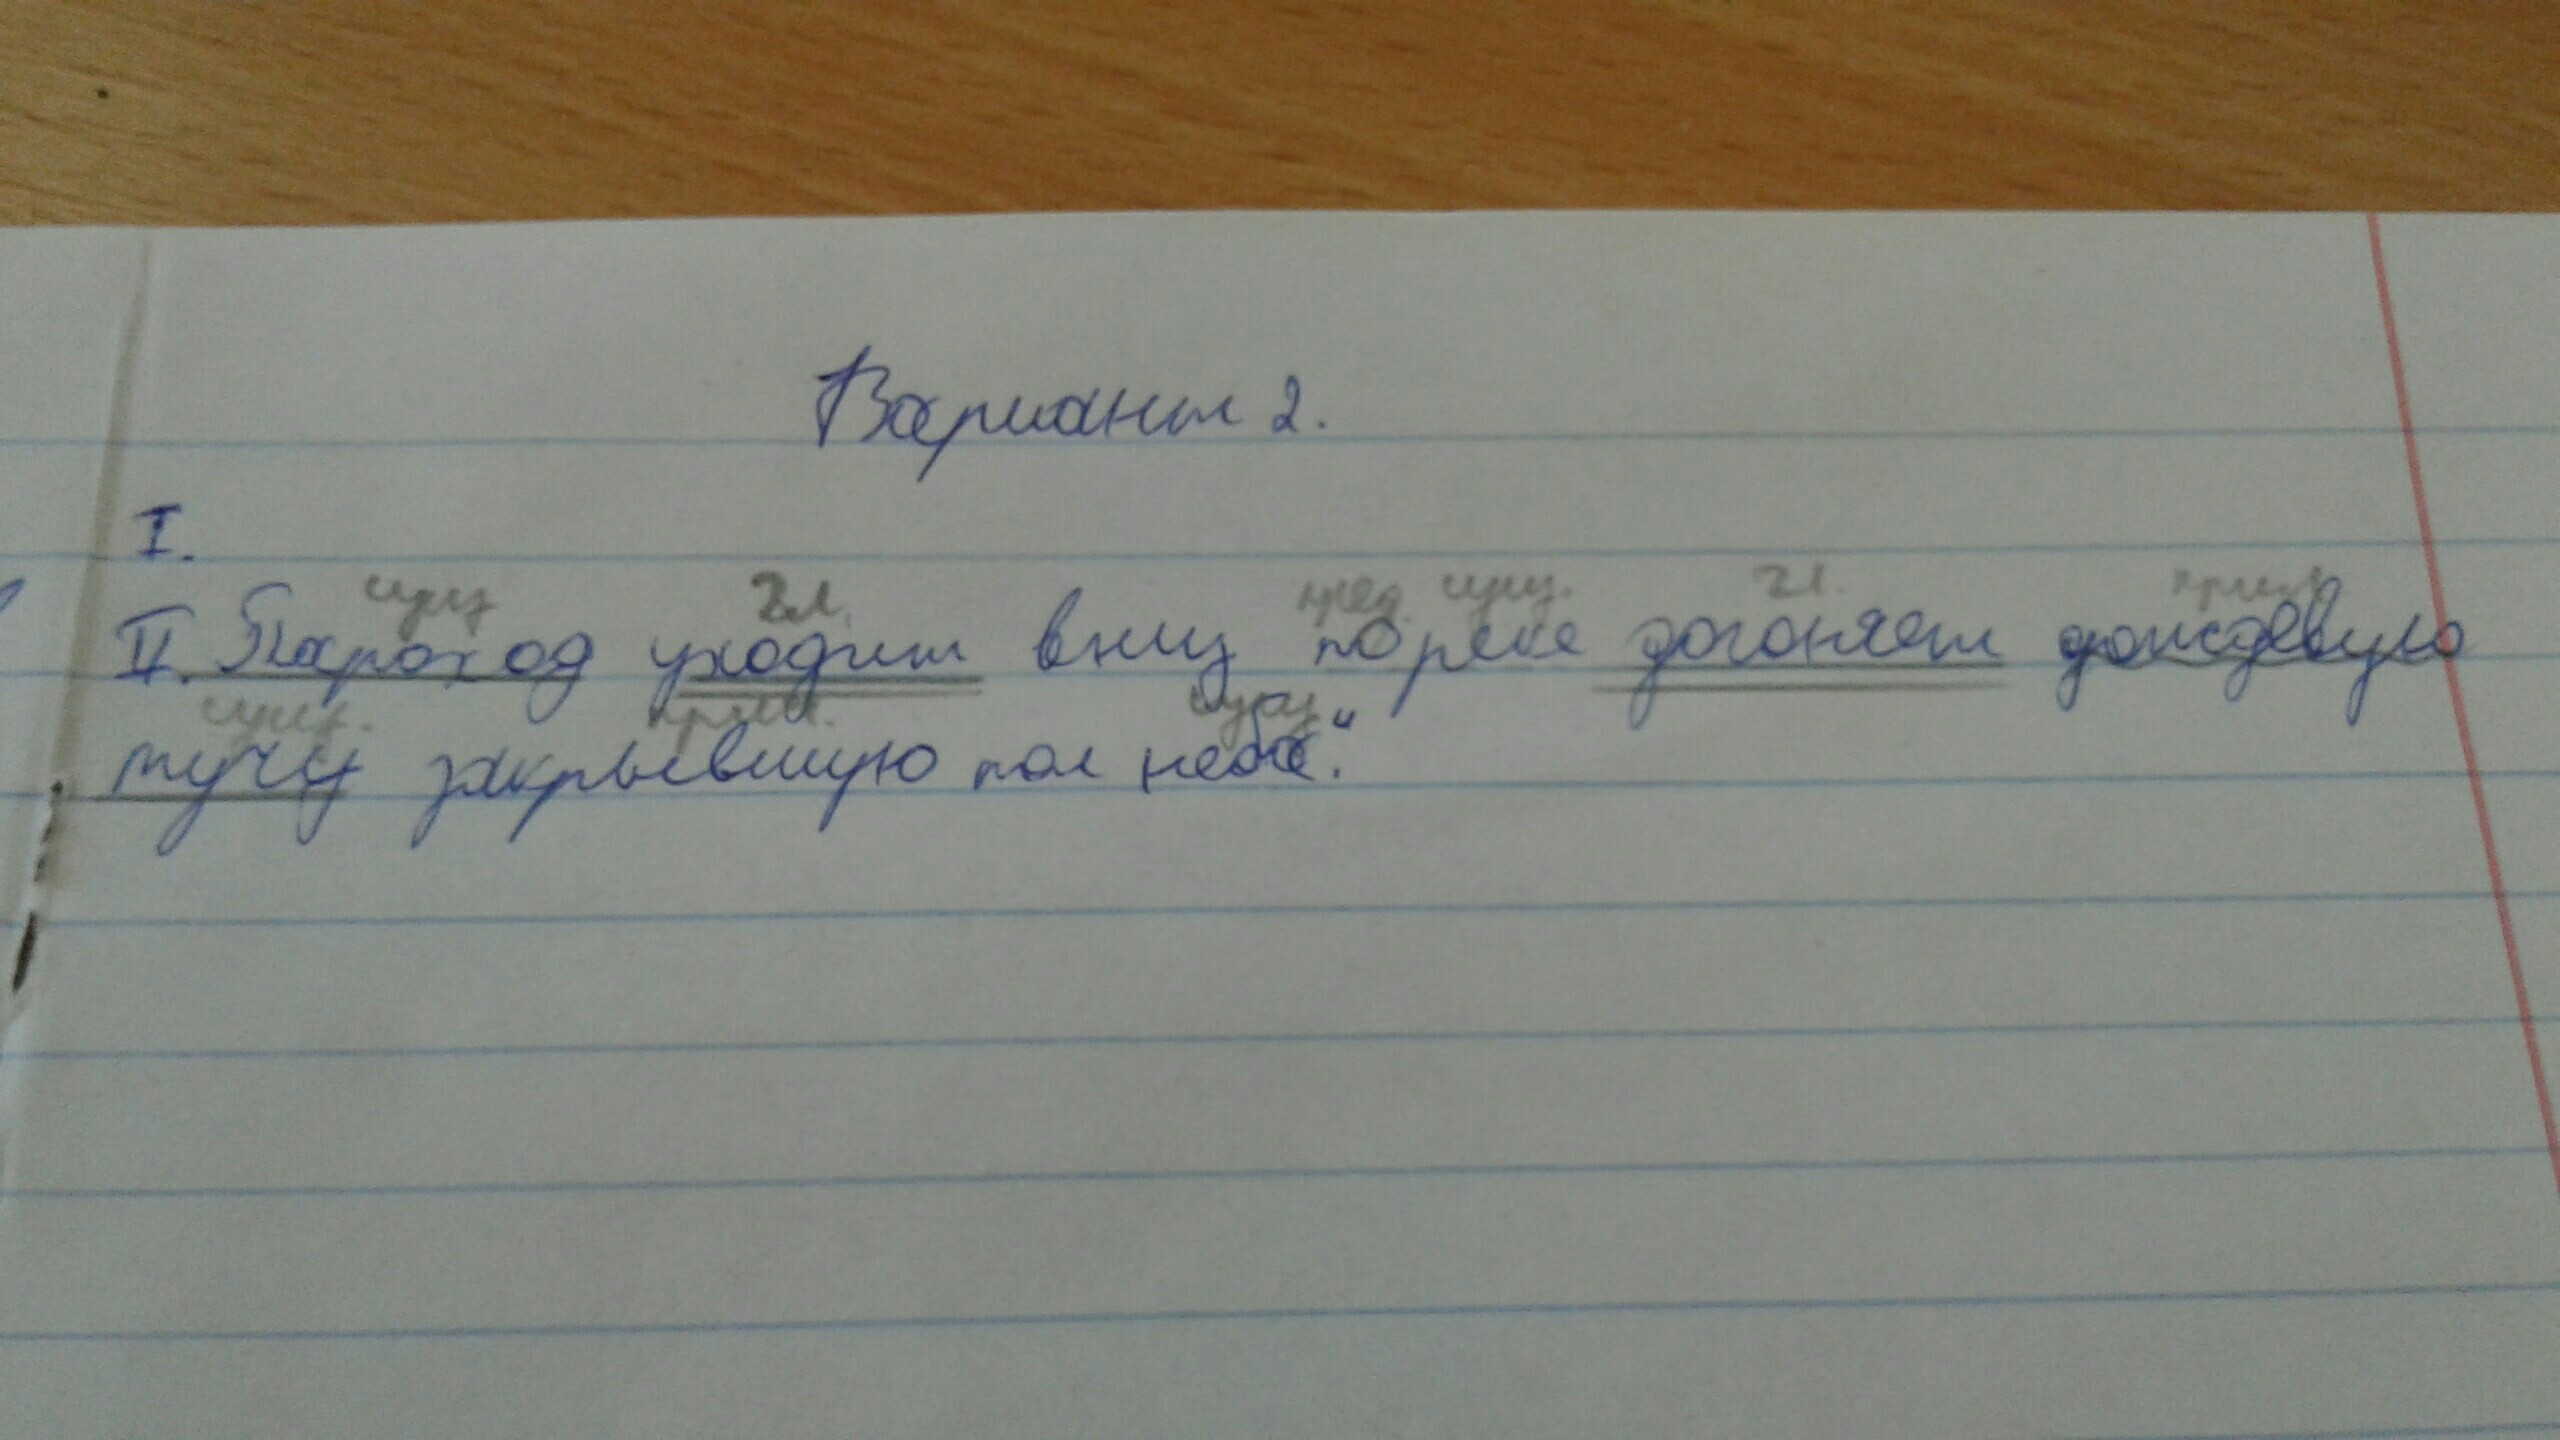 Вариант 2.
I.
сущ гл. пред. сущ. гл. прил
II. Пароход уходит вниз по реке догоняет дождевую
сущ. прил. сущ
тучу закрывшую пол неба."